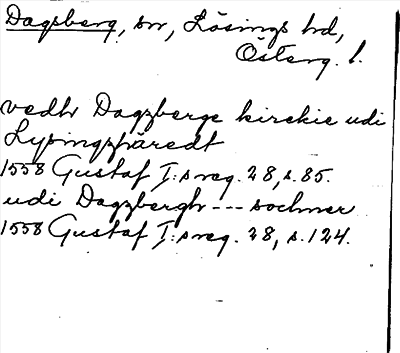 Dagsberg, sn, Lösings hd,
Österg. l.
vedh Dagzberge kirckie udi
Lysingzhäredt
1558 Gustaf I:s reg. 28, s. 85.
udi Dagzbergh --- sochner
1558 Gustaf I:s reg. 28, s. 124.